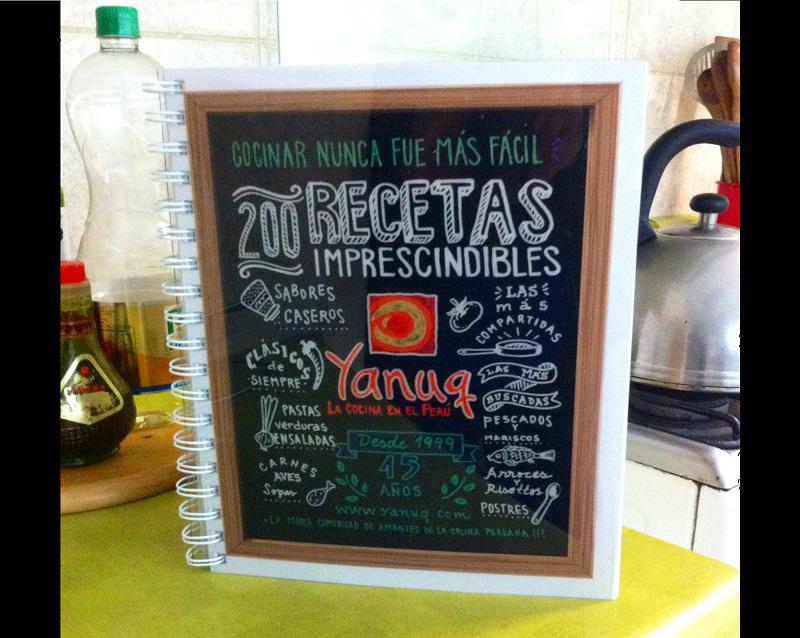 COCINAR NUNCA FUE MÁS FÁCIL
200 RECETAS
IMPRESCINDIBLES
SABORES
CASEROS
CLÁSICOS
de
SIEMPRE
PASTAS
verduras
ENSALADAS
CARNES
AVES
Sopas
Yanuq
LA COCINA EN EL PERÚ
Desde 1999
15
AÑOS
LAS
más
COMPARTIDAS
LAS MÁS
BUSCADAS
PESCADOS
MARISCOS
Arroces
y
Risottos
POSTRES
www.yanuq.com
LA COMUNIDAD DE AMANTES DE LA COCINA PERUANA!!!